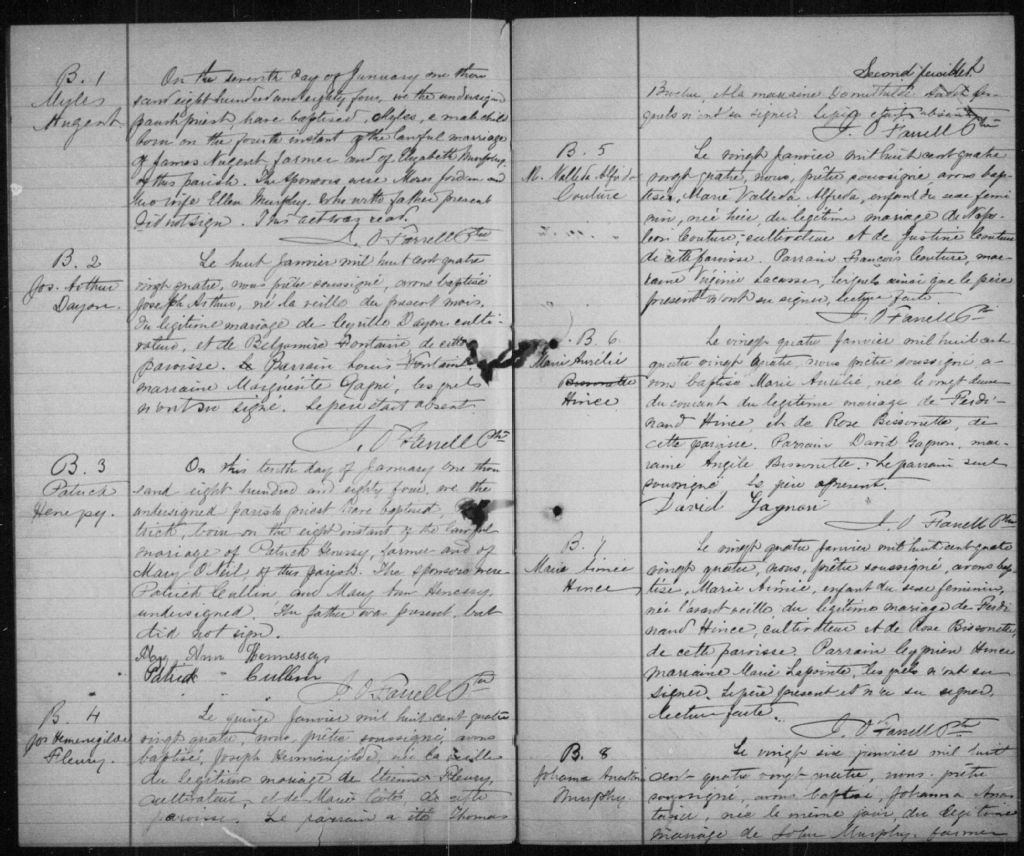 B. 1
Myles
Nugent
On the seventh day of January one thou
sand eight hundred and eighty four, we the undersigned
parish priest, have baptised, Myles, a male child
born on the fourth instant of the lawful marriage
of James Nugent farmer and of Elizabeth
of this parish. The sponsors were Moses Jordan and
his wife Ellen Murphy who with father present
did not sign. This act was read.
J. O'Farrell Ptre
B. 2
Jos. Arthur
Dayon.
Le huit Janvier mil huit cent quatre
vingt quatre, nous prêtre soussigné, avons baptisé
Joseph Arthur, né la veille du present mois,
du legitime mariage de Cyrille Dayon culti-
vateur, et de Belzemire Fontaine de cette
paroisse. Le Parrain Louis Fontaine
marraine Marguerite Gagné, lesquels
n'ont su signé. Le père etait absent
J. O'Farrell Ptre
B. 3
Patrick
Henessy.
On this tenth day of January one thou
sand eight hundred and eighty four, we the
undersigned parish priest have baptised,
trick, born on the eight instant of the lawful
mariage of Patrick Henessy, farmer and of
Mary O'Neil of this parish. The sponsors were
Patrick Cullin and Mary Ann Henessy
undersigned. The father was present but
did not sign.
Mary Ann Hennessy
Patrick Cullin
J. O'Farrell Ptre
B. 4
Jos Hermenigilde
Fleury.
Le quinze Janvier mil huit cent quatre
vingt quatre, nous, prêtre soussigné, avons
baptisé, Joseph Hermenigilde, né la veille
du legitime mariage de Etienne Fleury,
cultivateur, et de Marie Côté de cette
paroisse. Le parrain a été Thomas
Second feuillet
et la marraine Domithilde
quels n'ont su signer. Le père etait absent
J. O'Farrell Ptre
B. 5
M. Valleda Alfreda
Couture
Le vingt Janvier mil huit cent quatre
vingt quatre, nous, prêtre soussigné avons bap-
tisé, Marie Valleda Alfreda, enfant du sexe femi
nin, née hier, du legitime mariage de Napo-
leon Couture, cultivateur et de Justine Couture
de cette paroisse. Parrain François Couture, mar-
raine Virginie Lacasse, lesquels ainsi que le père
present n'ont su signer, lecture faite.
J. O'Farrell Ptre
B. 6
Marie Aurélie
Bissonette
Hince
Le vingt quatre Janvier mil huit cent
quatre vingt quatre, nous prêtre soussigné a-
vons baptisé Marie Aurélie, née le vingt deux
du courant du legitime mariage de Ferdi-
nand Hince et de Rose Bissonette, de
cette paroisse. Parrain David Gagnon, mar-
raine Angèle Bissonette. Le parrain seul
soussigné le père present.
David Gagnon
J. O'Farrell Ptre
B. 7
Marie Aimée
Hince
Le vingt quatre Janvier mil huit cent quatre
vingt quatre, nous, prêtre soussigné, avons bap-
tisé, Marie Aimée, enfant du sexe feminin,
née l'avant veille du legitime mariage de Ferdi
nand Hince, cultivateur et de Rose Bissonette,
de cette paroisse. Parrain Cyprien Hince
marraine Marie Lapointe, lesquels n'ont su
signer. Le père present et n'a su signer,
lecture faite.
J. O'Farrell Ptre
B. 8
Johanna Anastasia
Murphy
Le vingt six janvier mil huit
cent quatre vingt quatre, nous prêtre
soussigné, avons baptisé, Johanna Anas
tasie, née le même jour, du legitime
mariage de John Murphy, farmer